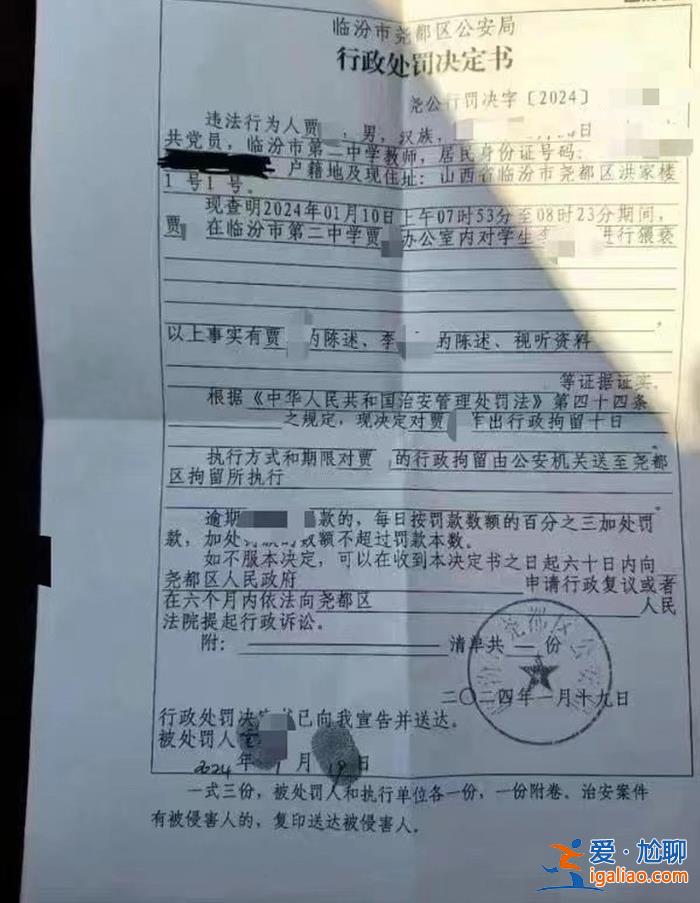 临汾市尧都区公安局
行政处罚决定书
尧公行罚决字〔2024〕
违法行为人贾 ，男，汉族， 日
共党员，临汾市第二中学教师，居民身份证号码：
户籍地及现住址：山西省临汾市尧都区洪家楼
1号1号。
现查明2024年01月10日上午07时53分至08时23分期间，
贾 在临汾市第二中学贾 办公室内对学生李 进行猥亵
以上事实有贾 的陈述、李 的陈述、视听资料
等证据证实。
根据《中华人民共和国治安管理处罚法》第四十四条
之规定，现决定对贾 作出行政拘留十日
执行方式和期限对贾 的行政拘留由公安机关送至尧都
区拘留所执行
逾期 款的，每日按罚款数额的百分之三加处罚
款，加处 数额不超过罚款本数。
如不服本决定，可以在收到本决定书之日起六十日内向
尧都区人民政府 申请行政复议或者
在六个月内依法向尧都区 人民
法院提起行政诉讼。
附： 清单共 份
二〇二四年一月十九日
行政处罚决定书已向我宣告并送达。
被处罚人
2024年1月19日
一式三份，被处罚人和执行单位各一份，一份附卷。治安案件
有被侵害人的，复印送达被侵害人。
爱·尬聊
igaliao.com